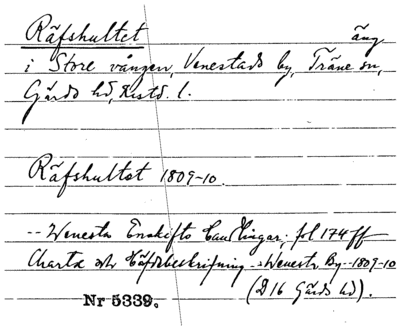 Räfshultet äng
i Store vången, Venestads by, Träne sn,
Gärds hd, Kristd. l.
Räfshultet 1809-10.
-- Wenesta Enskifts Handlingar, fol 174 ff
Charta och Häfdebeskrifning -- Wenesta By -- 1809-10
(D16 Gärds hd).
Nr 5339.